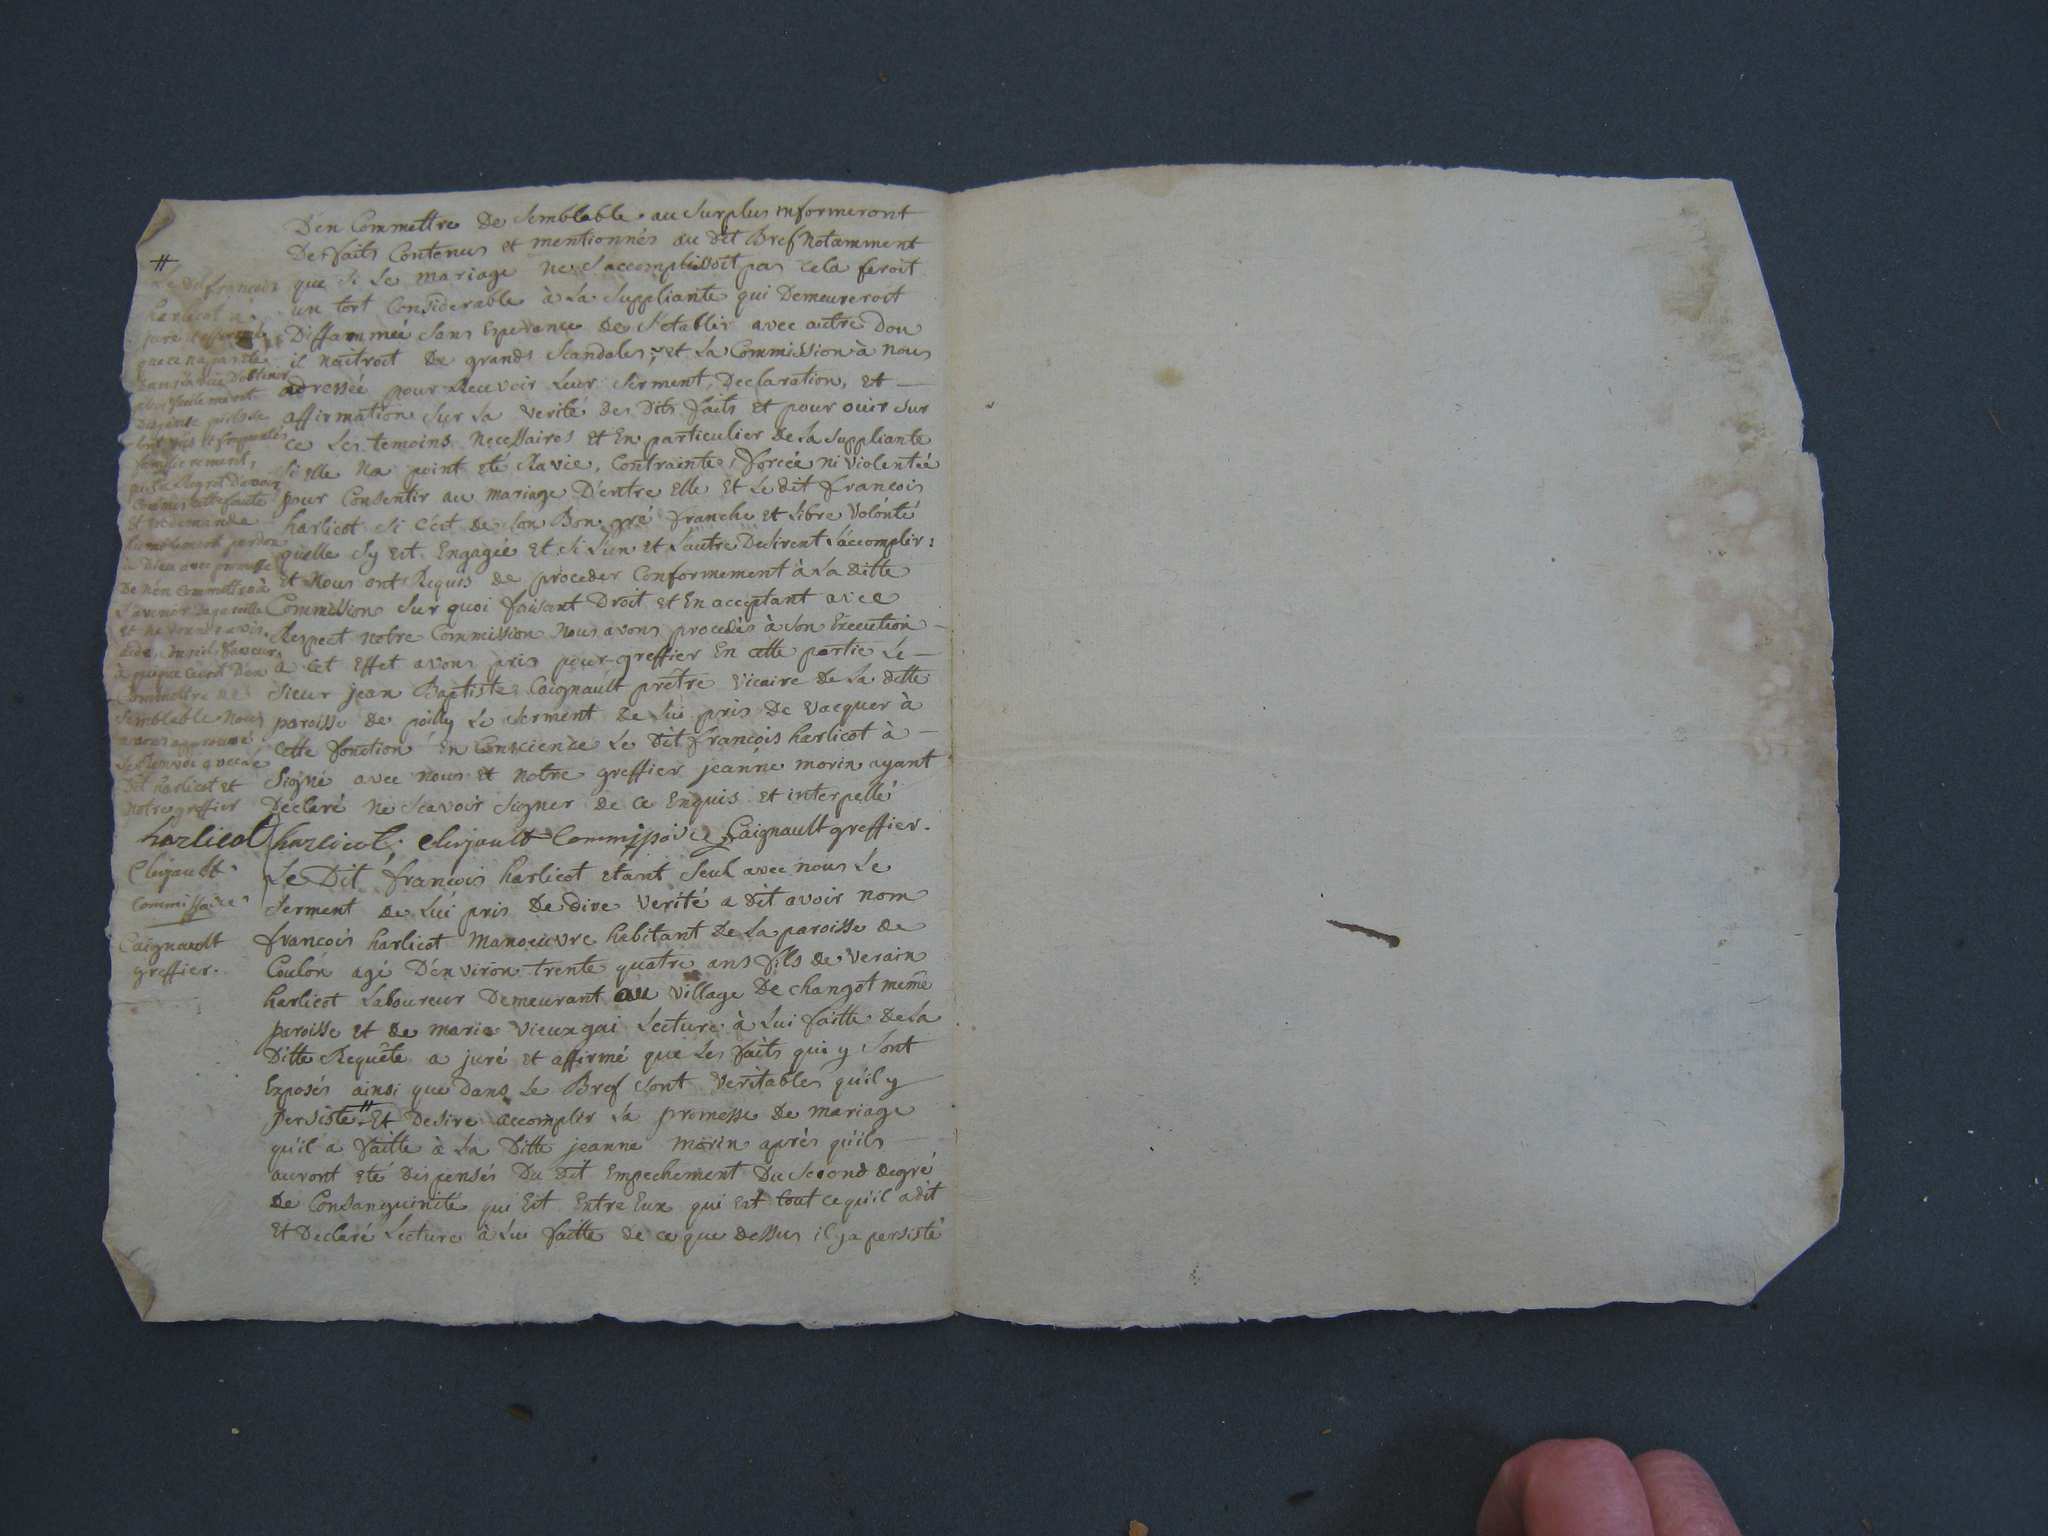 D'en Commettre De Semblable. au Surplus informeront
Des faits Contenus et mentionnés au Dit Bref Notamment
que Si Le mariage ne S'accomplissoit pas cela feroit
un tort Considerable à La Suppliante qui Demeureroit
Diffammée Sans Esperance de S'etablir avec autre Dou
il naitroit De grands Scandales; et La Commission à nous
adressée pour Recevoir Leur Serment, Declaration, et
affirmation Sur La verité des Dits faits et pour ouir Sur
ce Les temoins necessaires et En particulier de La Suppliante
Si elle Na point eté Ravie, Contrainte, forcée ni violentée
pour Consentir au mariage D'entre Elle et Le dit francois
harlicot Si c'est de Son Bon gré franche et Libre volonté
quelle Sy est Engagée et Si L'un et L'autre Desirent L'accomplir:
et Nous ont Requis de proceder Conformement à La Ditte
Commission Sur quoi faisant Droit et En acceptant avec
Respect notre Commission Nous avons procedés à Son Execution
à Cet Effet avons pris pour greffier En cette partie Le
Sieur jean Baptiste Caignault prêtre vicaire de La ditte
paroisse de poilly Le Serment de Lui pris De vacquer à
cette fonction En Conscience Le Dit francois harlicot à
Signé avec nous et notre greffier jeanne morin ayant
Déclaré ne Scavoir Signer de ce Enquis et interpellé
harlicot. Clujault Commissaire Caignault greffier.
Le Dit francois harlicot etant Seul avec nous Le
Serment de Lui pris De dire verité a Dit avoir nom
francois harlicot Manoeuvre habitant de La paroisse de
Coulon agé D'environ trente quatre ans fils de verain
harlicot Laboureur Demeurant au village De changot même
paroisse et de marie vieuxgai Lecture à Lui faitte de La
Ditte Requête a juré et affirmé que Les faits qui y Sont
Exposés ainsi que Dans Le Bref Sont veritables qu'il y
persiste # Et Desire accomplir La promesse De mariage
qu'il a faitte à La Ditte jeanne morin après qu'ils
auront eté Dispensés Du Dit Empechement Du Second degré
De Consanguinité qui Est Entre Eux qui est tout ce qu'il a dit
et Declaré Lecture à Lui faitte de ce que Dessus il y a persisté
#
Le Dit francois
harlicot a
juré et affirmé
que ce n'a pas eté
Dans La vuë D'obtenir
plus facilement
Dispense
familierement,
Regret D'avoir
Commis cette faute
et En demande
humblement pardon
à Dieu avec promesse
De n'en Commettre à
L'avenir De pareille
et ne Donner avis,
aide, Conseil, faveur
à quique ce soit D'en
Commettre De
Semblable Nous
avons approuvé
Le Renvoi avec Le
Dit harlicot et
Notre greffier
harlicot
Clujault
Commissaire
Caignault
greffier.